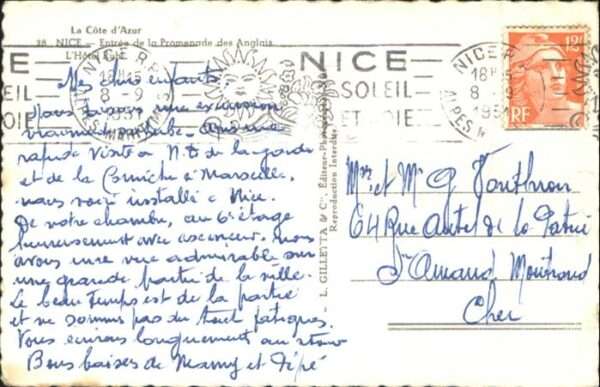 La Côte d'Azur
38. NICE — Entrée de la Promenade des Anglais
L'Hôtel Ruhl
NICE
SOLEIL
ET JOIE
NICE R.P.
18H
8 - 9
1951
ALPES MMES
12F
RF
Mes chers enfants.
Nous faisons une excursion
vraiment superbe. Après une
rapide visite à N.D. de la garde
et de la Corniche à Marseille,
nous voici installés à Nice.
De notre chambre, au 6e étage
heureusement avec ascenseur, nous
avons une vue admirable sur
une grande partie de la ville.
Le beau temps est de la partie
et ne sommes pas du tout fatigués.
Vous écrirons longuement au
Bons baisers de Mamy et Pépé
L. GILLETTA & Cie, Éditeur-Photographe
Reproduction Interdite
Mme et Mr G.
64 Rue de la Patrie
St Amand Montrond
Cher